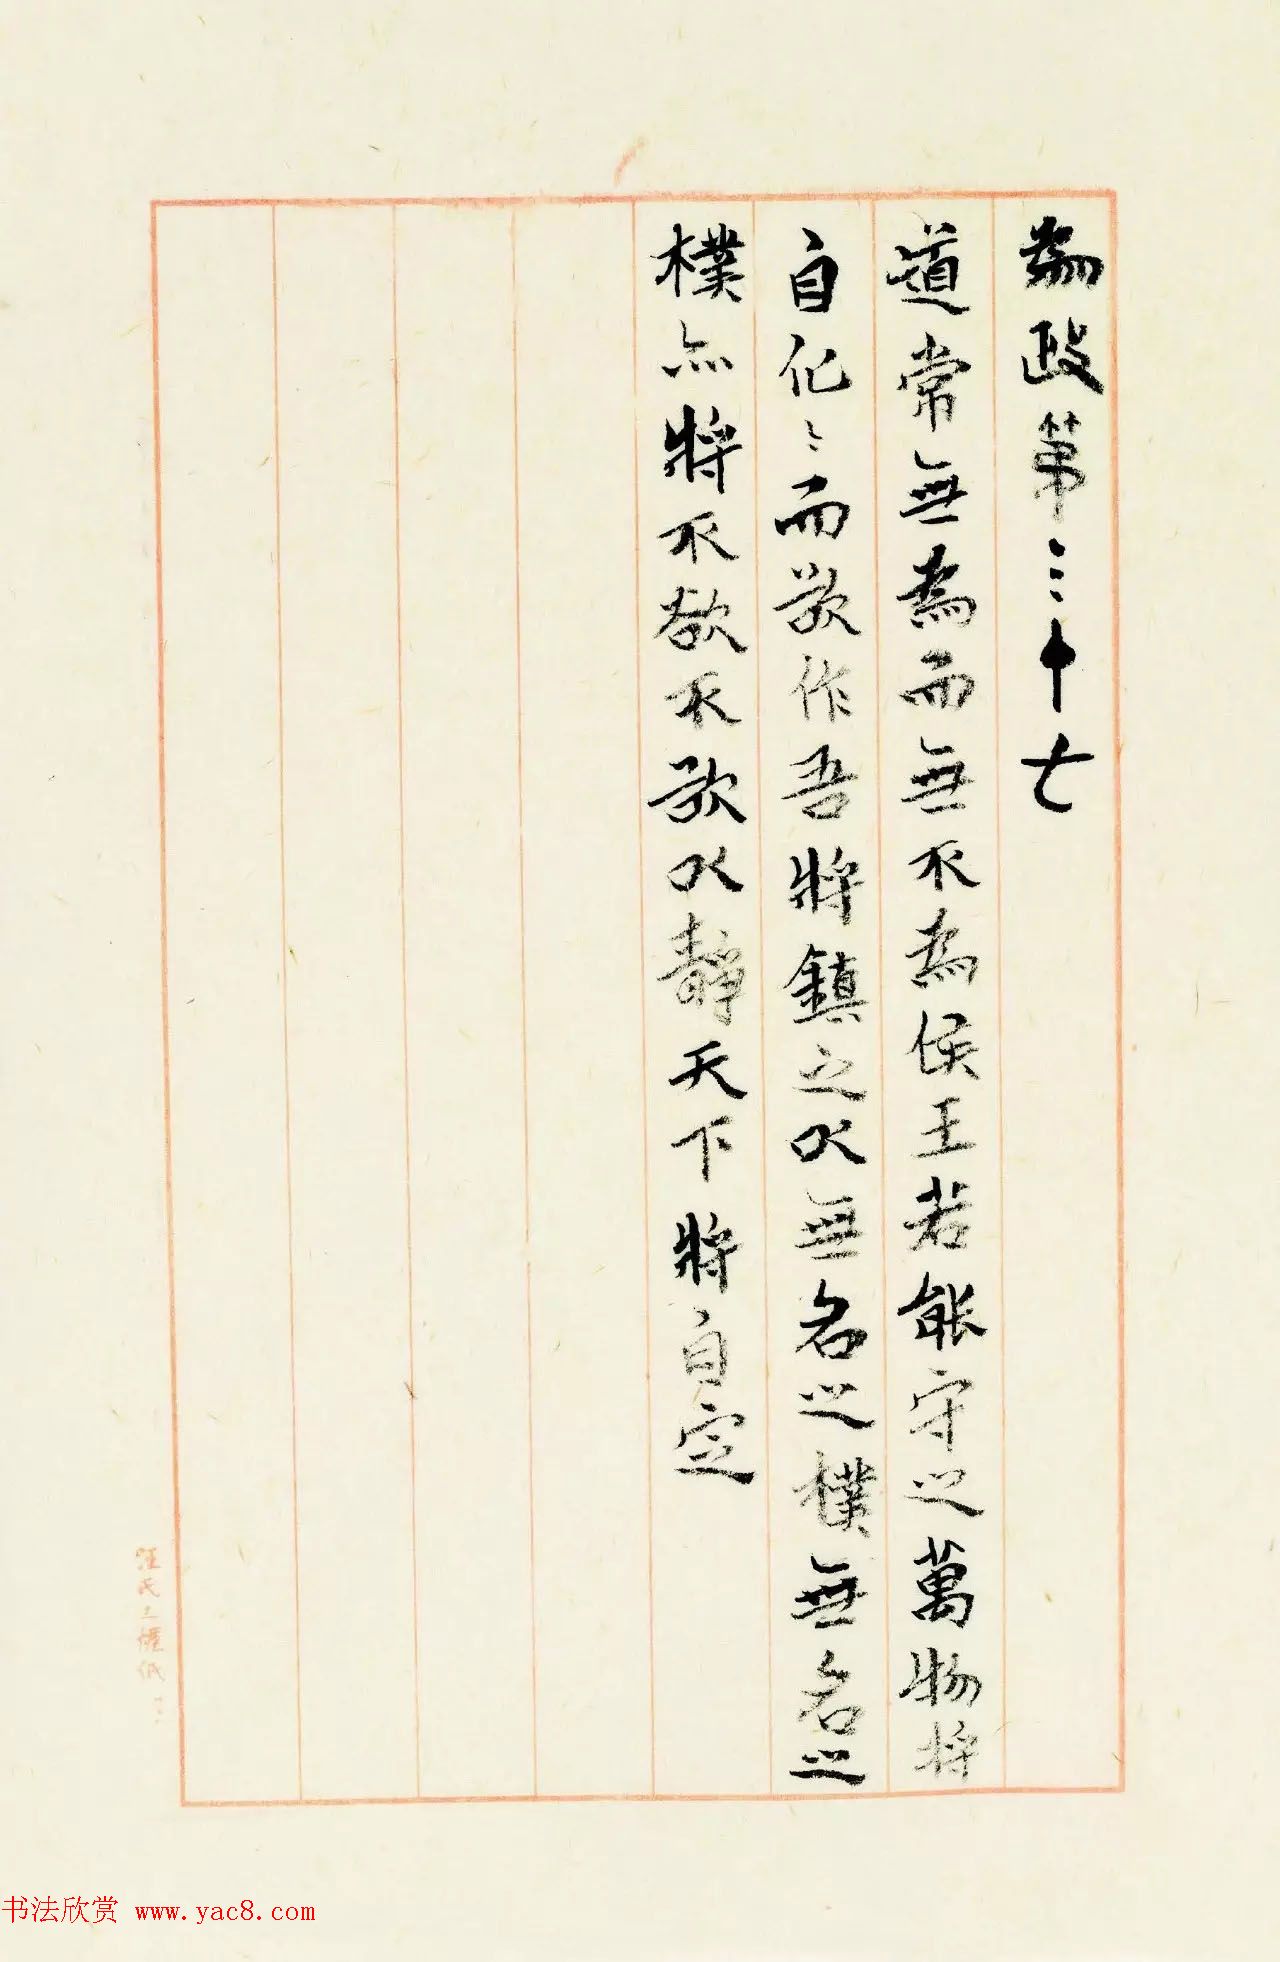 為政第三十七
道常無為而無不為侯王若能守之萬物將
自化〻而欲作吾將鎮之以無名之樸無名之
樸亦將不欲不欲以靜天下將自定
汪氏
书法欣赏 www.yac8.com